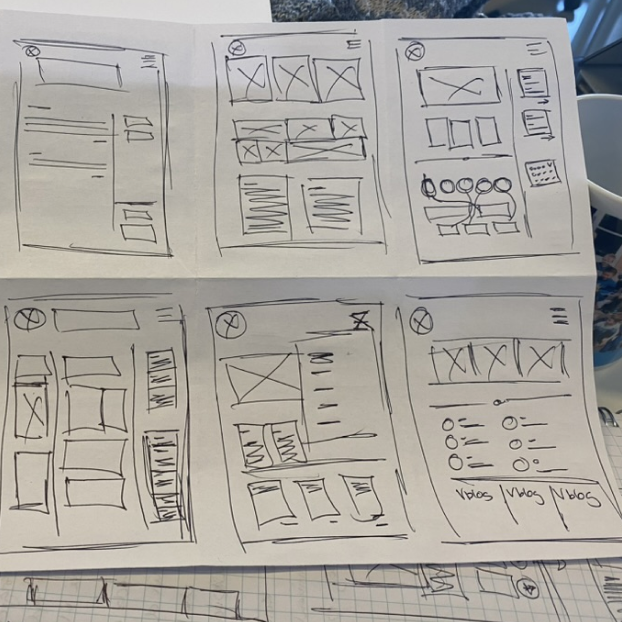 Vblog Vblog Vblog